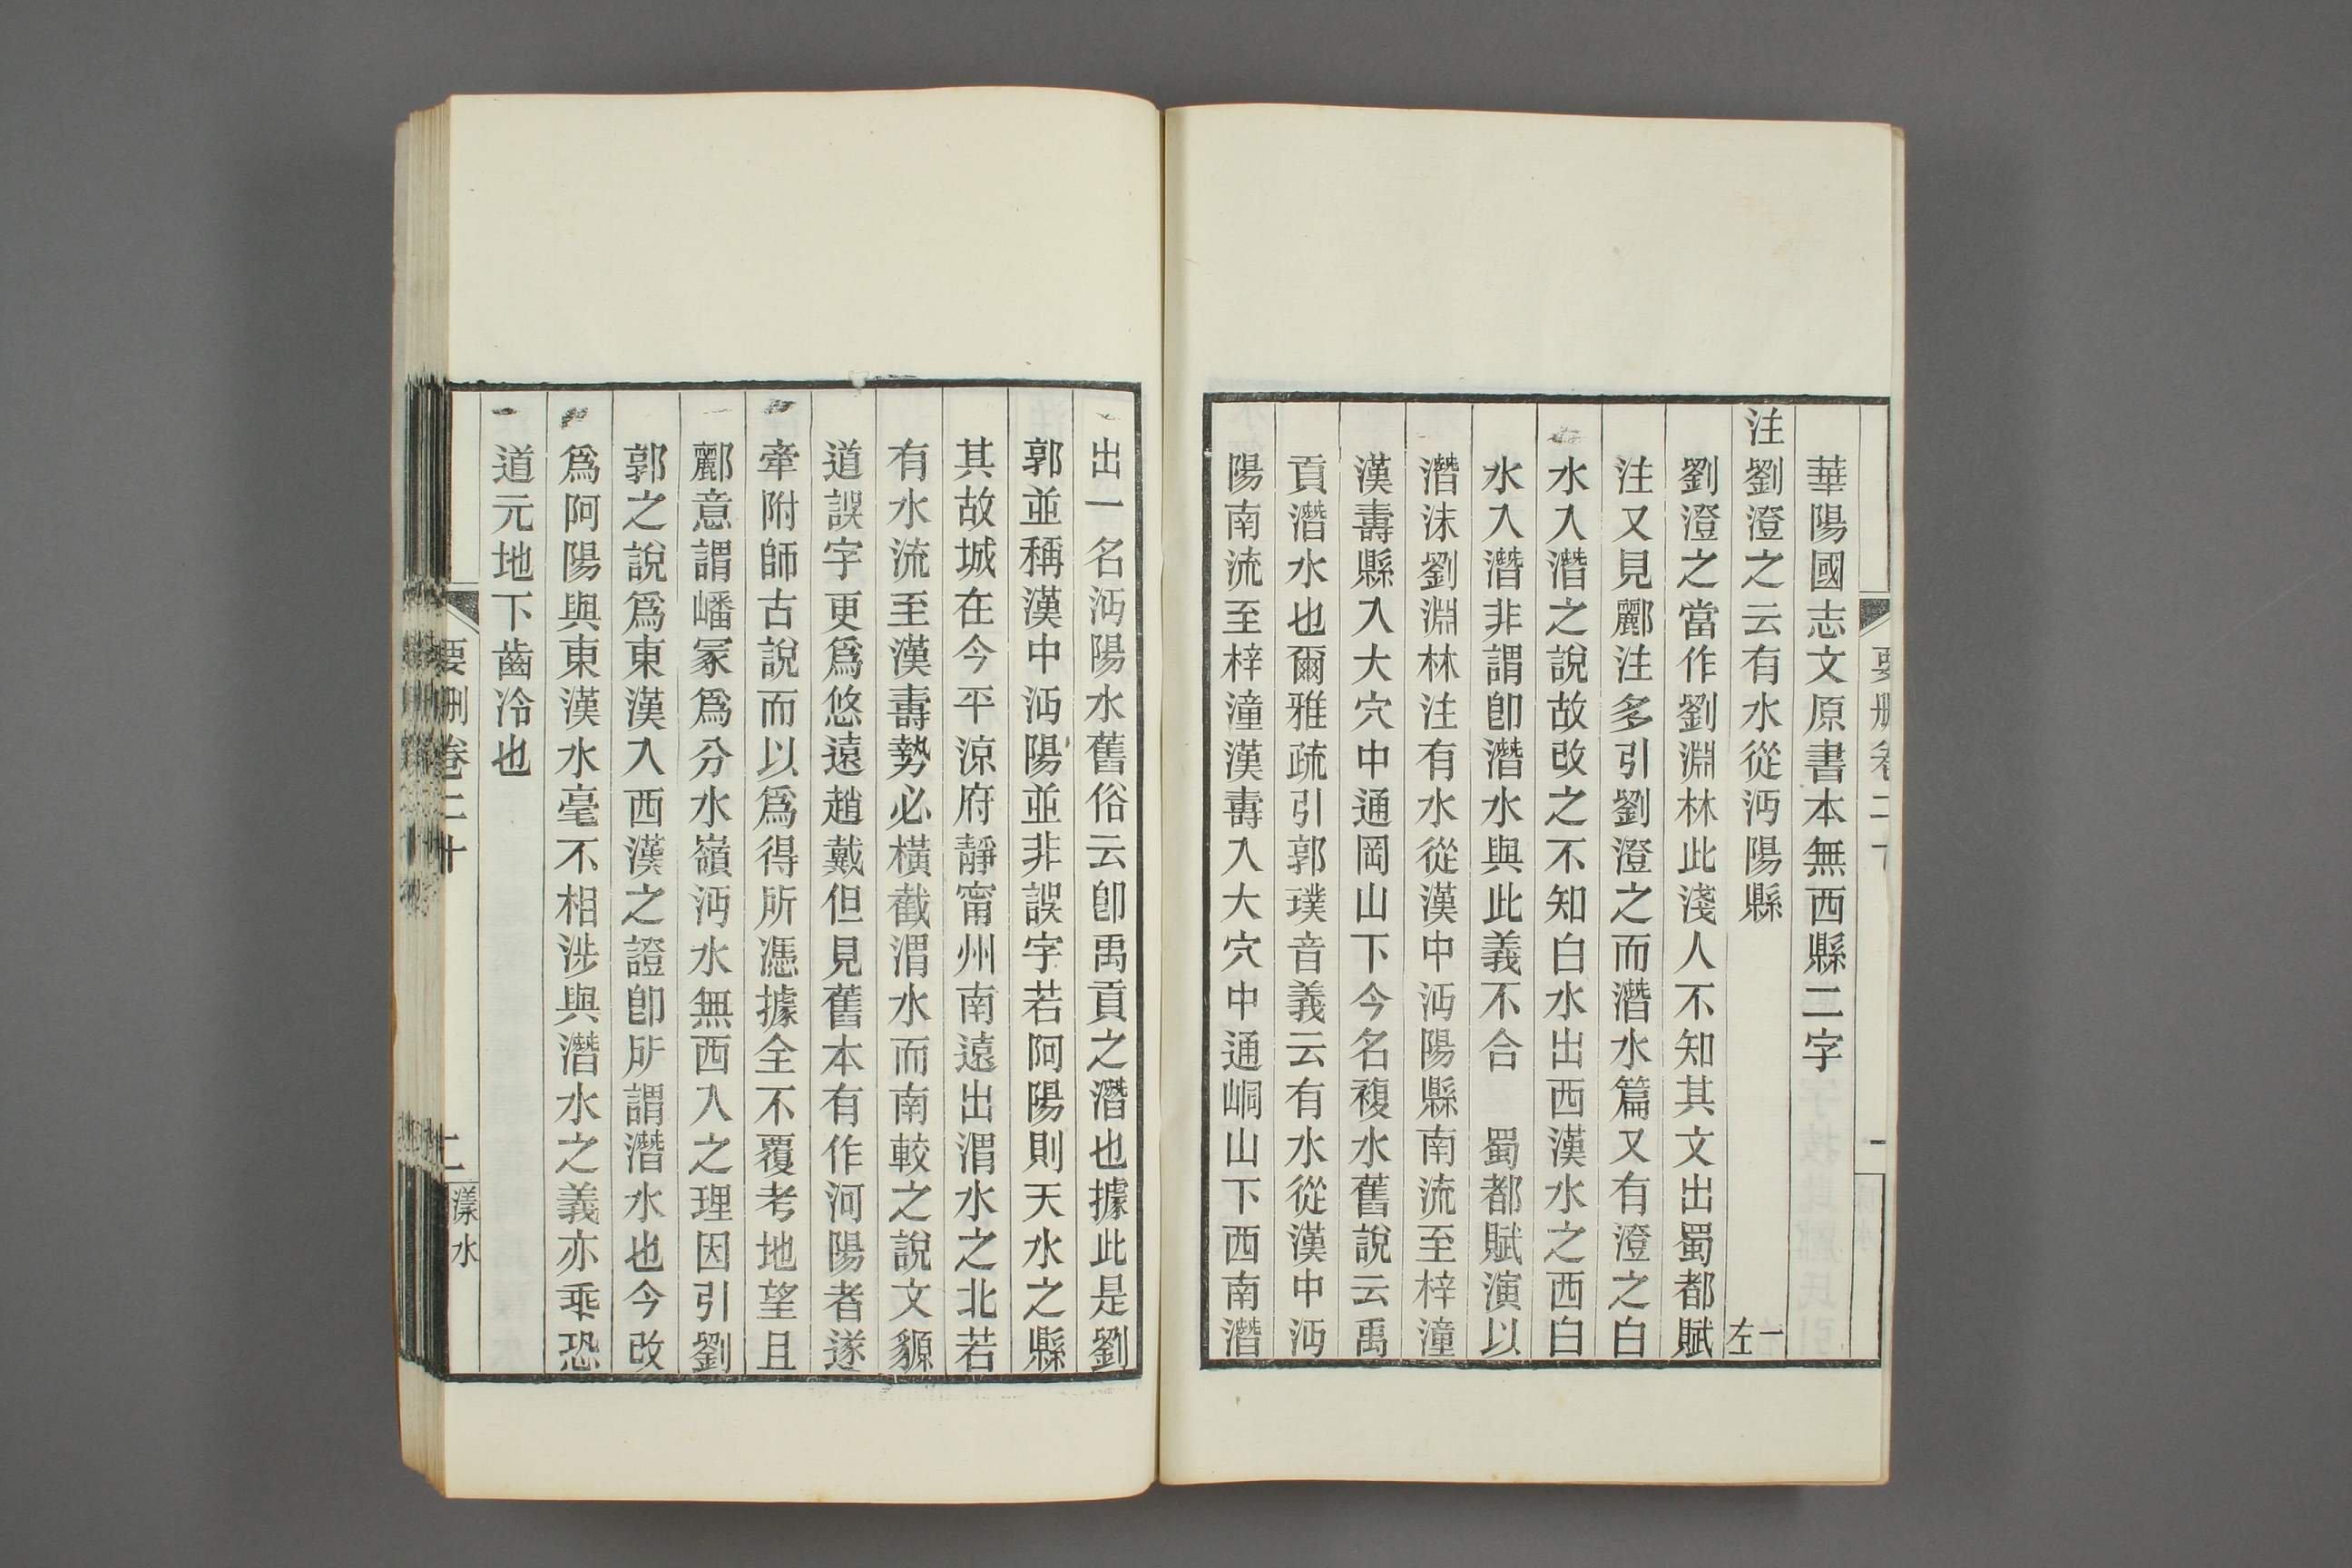 華陽國志文原書本無西縣二字
注劉澄之云有水從沔陽縣 一左
劉澄之當作劉淵林此淺人不知其文出蜀都賦
注又見酈注多引劉澄之而潛水篇又有澄之白
水入潛之說故改之不知白水出西漢水之西白
水入潛非謂卽潛水與此義不合 蜀都賦演以
潛沬劉淵林注有水從漢中沔陽縣南流至梓潼
漢壽縣入大穴中通岡山下今名複水舊說云禹
貢潛水也爾雅疏引郭璞音義云有水從漢中沔
陽南流至梓潼漢壽入大穴中通峒山下西南潛
出一名沔陽水舊俗云卽禹貢之潛也據此是劉
郭並稱漢中沔陽並非誤字若阿陽則天水之縣
其故城在今平涼府靜甯州南遠出渭水之北若
有水流至漢壽勢必橫截渭水而南較之說文豲
道誤字更爲悠遠趙戴但見舊本有作河陽者遂
牽附師古說而以爲得所憑據全不覆考地望且
酈意謂嶓冢爲分水嶺沔水無西入之理因引劉
郭之說爲東漢入西漢之證卽所謂潛水也今改
爲阿陽與東漢水毫不相涉與潛水之義亦乖恐
道元地下齒冷也
要刪卷二十
二
漾水